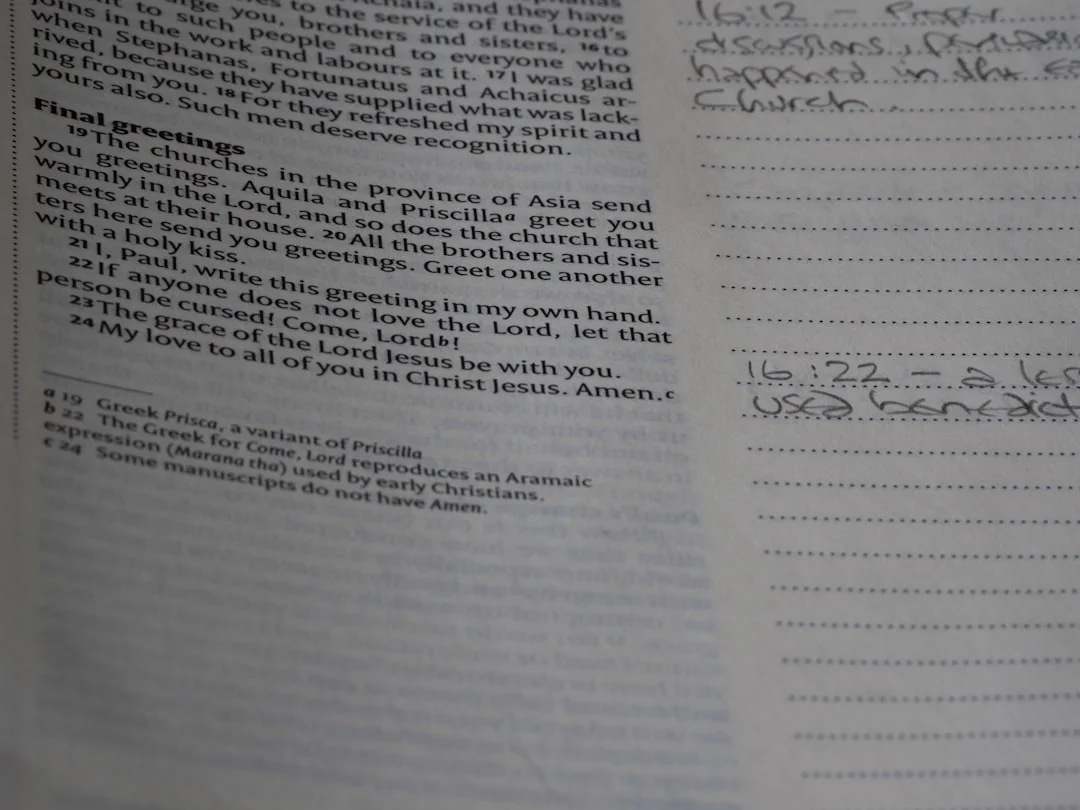 to the service of the Lord's
you, brothers and sisters, 16 to
to such people and to everyone who
joins in the work and labours at it. 17 I was glad
when Stephanas, Fortunatus and Achaicus ar-
rived, because they have supplied what was lack-
ing from you. 18 For they refreshed my spirit and
yours also. Such men deserve recognition.
Final greetings
19 The churches in the province of Asia send
you greetings. Aquila and Priscilla a greet you
warmly in the Lord, and so does the church that
meets at their house. 20 All the brothers and sis-
ters here send you greetings. Greet one another
with a holy kiss.
21 I, Paul, write this greeting in my own hand.
22 If anyone does not love the Lord, let that
person be cursed! Come, Lord b!
23 The grace of the Lord Jesus be with you.
24 My love to all of you in Christ Jesus. Amen. c
a 19 Greek Prisca, a variant of Priscilla
b 22 The Greek for Come, Lord reproduces an Aramaic
expression (Marana tha) used by early Christians.
c 24 Some manuscripts do not have Amen.
16:12 – Proper
discussions,
happened in the
Church.
16:22 – a
used